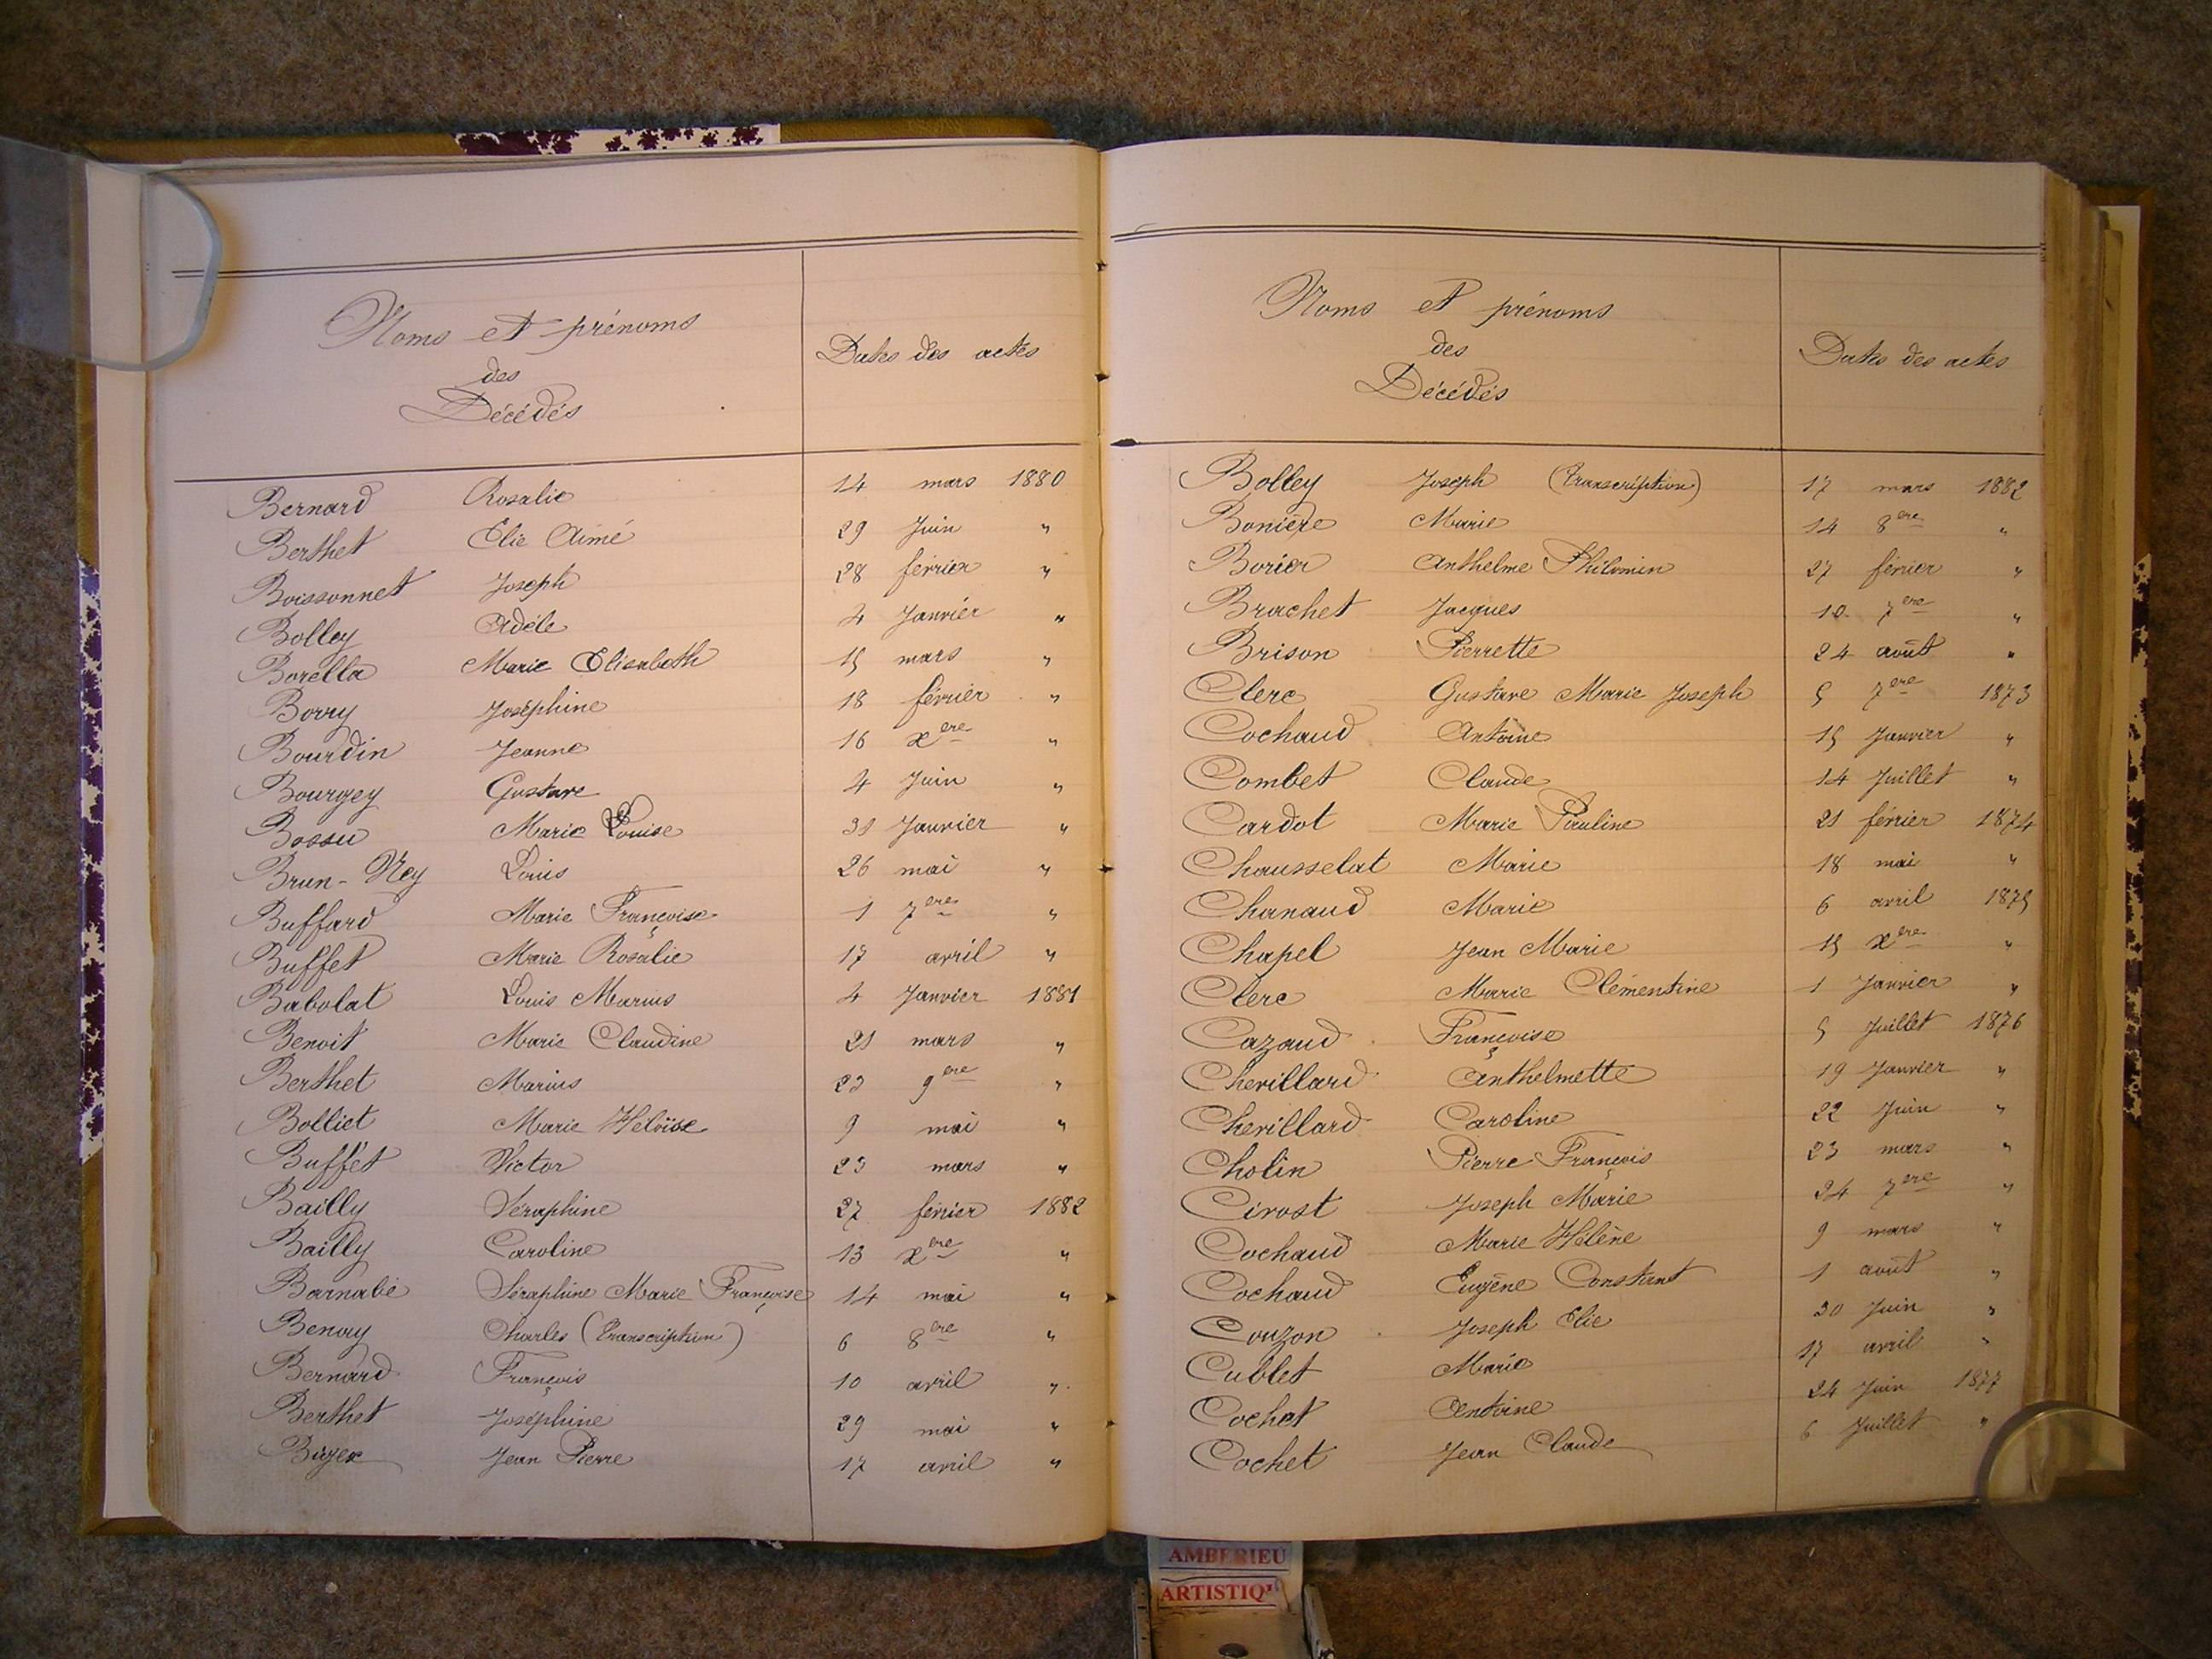 Noms et prénoms
des
Décédés
Dates des actes
Bernard Rosalie 14 mars 1880
Berthet Elie Aimé 29 Juin "
Boissonnet Joseph 28 février "
Bolley Adèle 4 Janvier "
Borella Marie Elisabeth 15 mars "
Bovry Joséphine 18 février "
Bourdin Jeanne 16 xbre "
Bourgey Gustave 4 Juin "
Bossu Marie Louise 31 Janvier "
Brun-Ney Louis 26 mai "
Buffard Marie Françoise 1 7bre "
Buffet Marie Rosalie 17 avril "
Babolat Louis Marius 4 Janvier 1881
Benoit Marie Claudine 21 mars "
Berthet Marius 23 9bre "
Bolliet Marie Héloïse 9 mai "
Buffet Victor 23 mars "
Bailly Séraphine 27 février 1882
Bailly Caroline 13 xbre "
Barnabé Séraphine Marie Françoise 14 mai "
Benay Charles (Transcription) 6 8bre "
Bernard François 10 avril "
Berthet Joséphine 29 mai "
Bizex Jean Pierre 17 avril "
Noms et prénoms
des
Décédés
Dates des actes
Bolley Joseph (Transcription) 17 mars 1882
Bonière Marie 14 8bre "
Borier Anthelme Philomin 27 février "
Brachet Jacques 10 7bre "
Brison Pierrette 24 août "
Clerc Gustave Marie Joseph 5 7bre 1873
Cochaud Antoine 15 Janvier "
Combet Claude 14 Juillet "
Cardot Marie Pauline 21 février 1874
Chausselat Marie 18 mai "
Chanaud Marie 6 avril 1875
Chapel Jean Marie 15 xbre "
Clerc Marie Clémentine 1 Janvier "
Cazaud Françoise 5 Juillet 1876
Chevillard Anthelmette 19 Janvier "
Chevillard Caroline 22 Juin "
Cholin Pierre François 23 mars "
Cirost Joseph Marie 24 7bre "
Cochaud Marie Hélène 9 mars "
Cochaud Eugène Constant 1 août "
Couzon Joseph Elie 30 Juin "
Cublet Marie 17 avril "
Cochet Antoine 24 Juin 1877
Cochet Jean Claude 6 Juillet "
AMBERIEU
ARTISTIQ